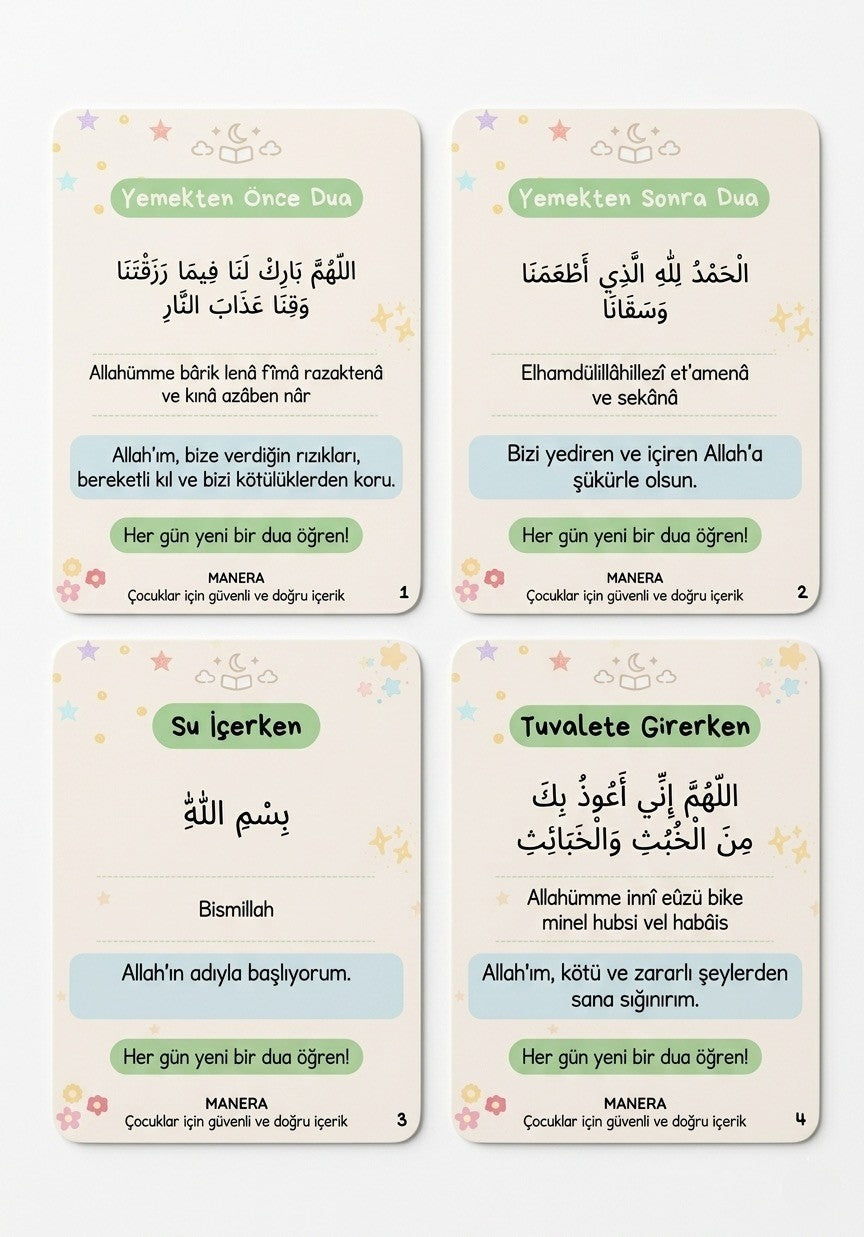 Yemekten Önce Dua
اللّٰهُمَّ بَارِكْ لَنَا فِيمَا رَزَقْتَنَا
وَقِنَا عَذَابَ النَّارِ
Allahümme bârik lenâ fîmâ razaktenâ
ve kınâ azâben nâr
Allah'ım, bize verdiğin rızıkları,
bereketli kıl ve bizi kötülüklerden koru.
Her gün yeni bir dua öğren!
MANERA
Çocuklar için güvenli ve doğru içerik
1
Yemekten Sonra Dua
الْحَمْدُ لِلّٰهِ الَّذِي أَطْعَمَنَا
وَسَقَانَا
Elhamdülillâhillezî et'amenâ
ve sekânâ
Bizi yediren ve içiren Allah'a
şükürle olsun.
Her gün yeni bir dua öğren!
MANERA
Çocuklar için güvenli ve doğru içerik
2
Su İçerken
بِسْمِ اللّٰهِ
Bismillah
Allah'ın adıyla başlıyorum.
Her gün yeni bir dua öğren!
MANERA
Çocuklar için güvenli ve doğru içerik
3
Tuvalete Girerken
اللّٰهُمَّ إِنِّي أَعُوذُ بِكَ
مِنَ الْخُبُثِ وَالْخَبَائِثِ
Allahümme innî eûzü bike
minel hubsi vel habâis
Allah'ım, kötü ve zararlı şeylerden
sana sığınırım.
Her gün yeni bir dua öğren!
MANERA
Çocuklar için güvenli ve doğru içerik
4